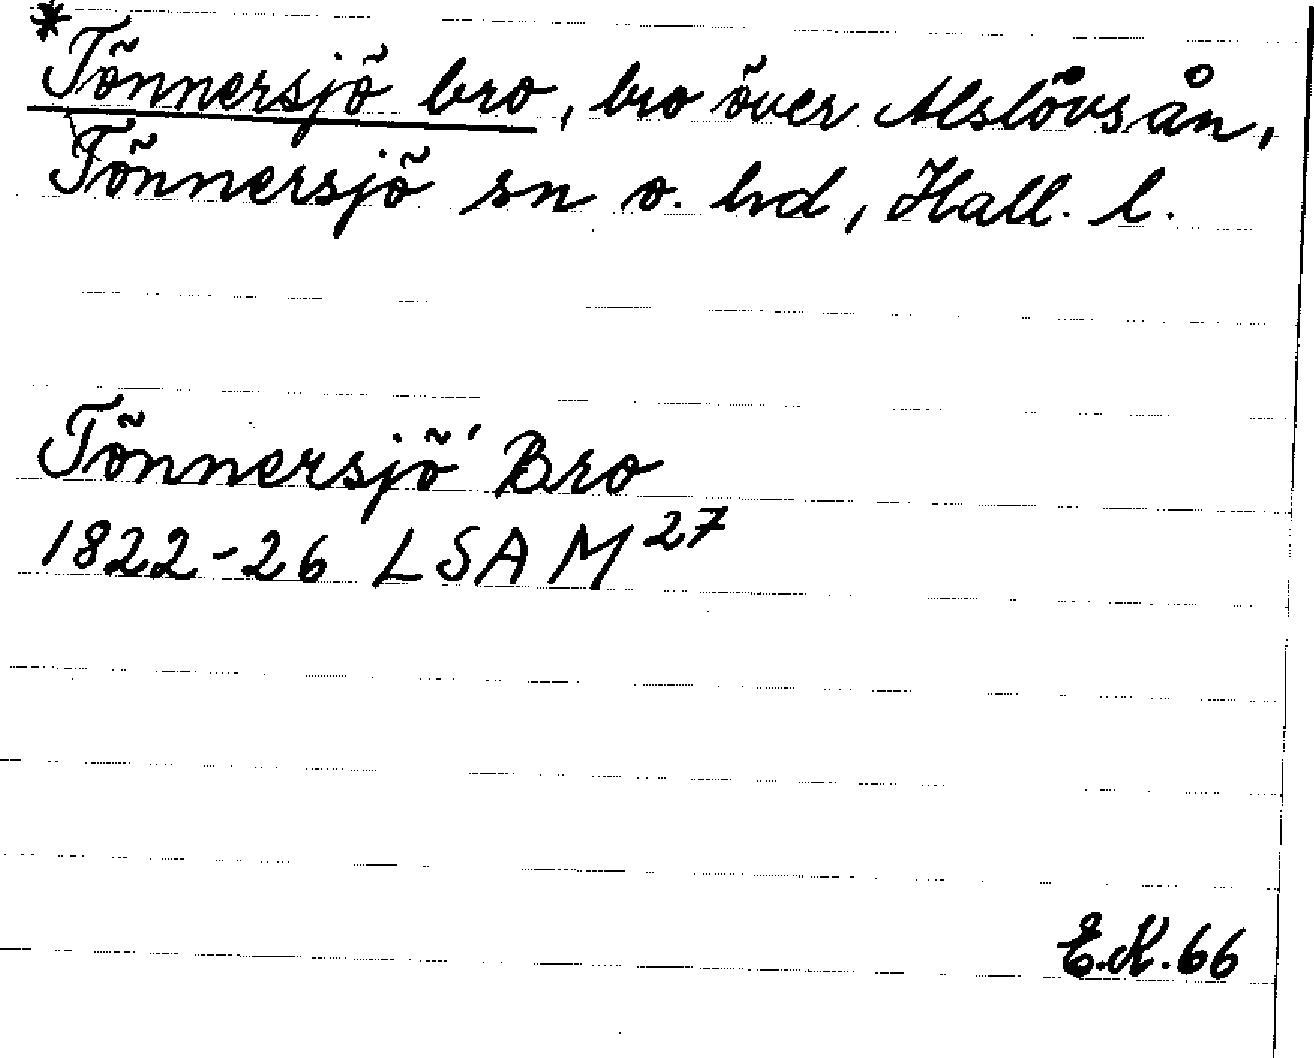 *Tönnersjö bro, bro över Alslövsån,
Tönnersjö sn o. hd, Hall. l.
Tönnersjö' Bro
1822-26 LSA M27
E.K.66